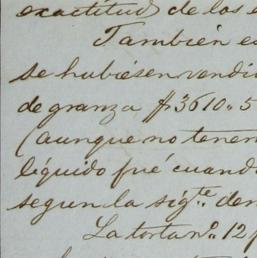 exactitud de los e
También e
se hubiésen vendi
de granza $3610.5
(aunque no tenem
líquido fué cuand
segun la sigte. dem
La torta no. 12